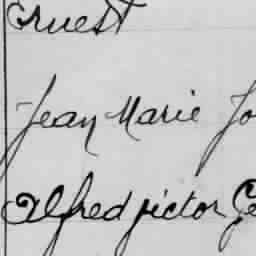 Ernest
Jean Marie Jo
Alfred victor